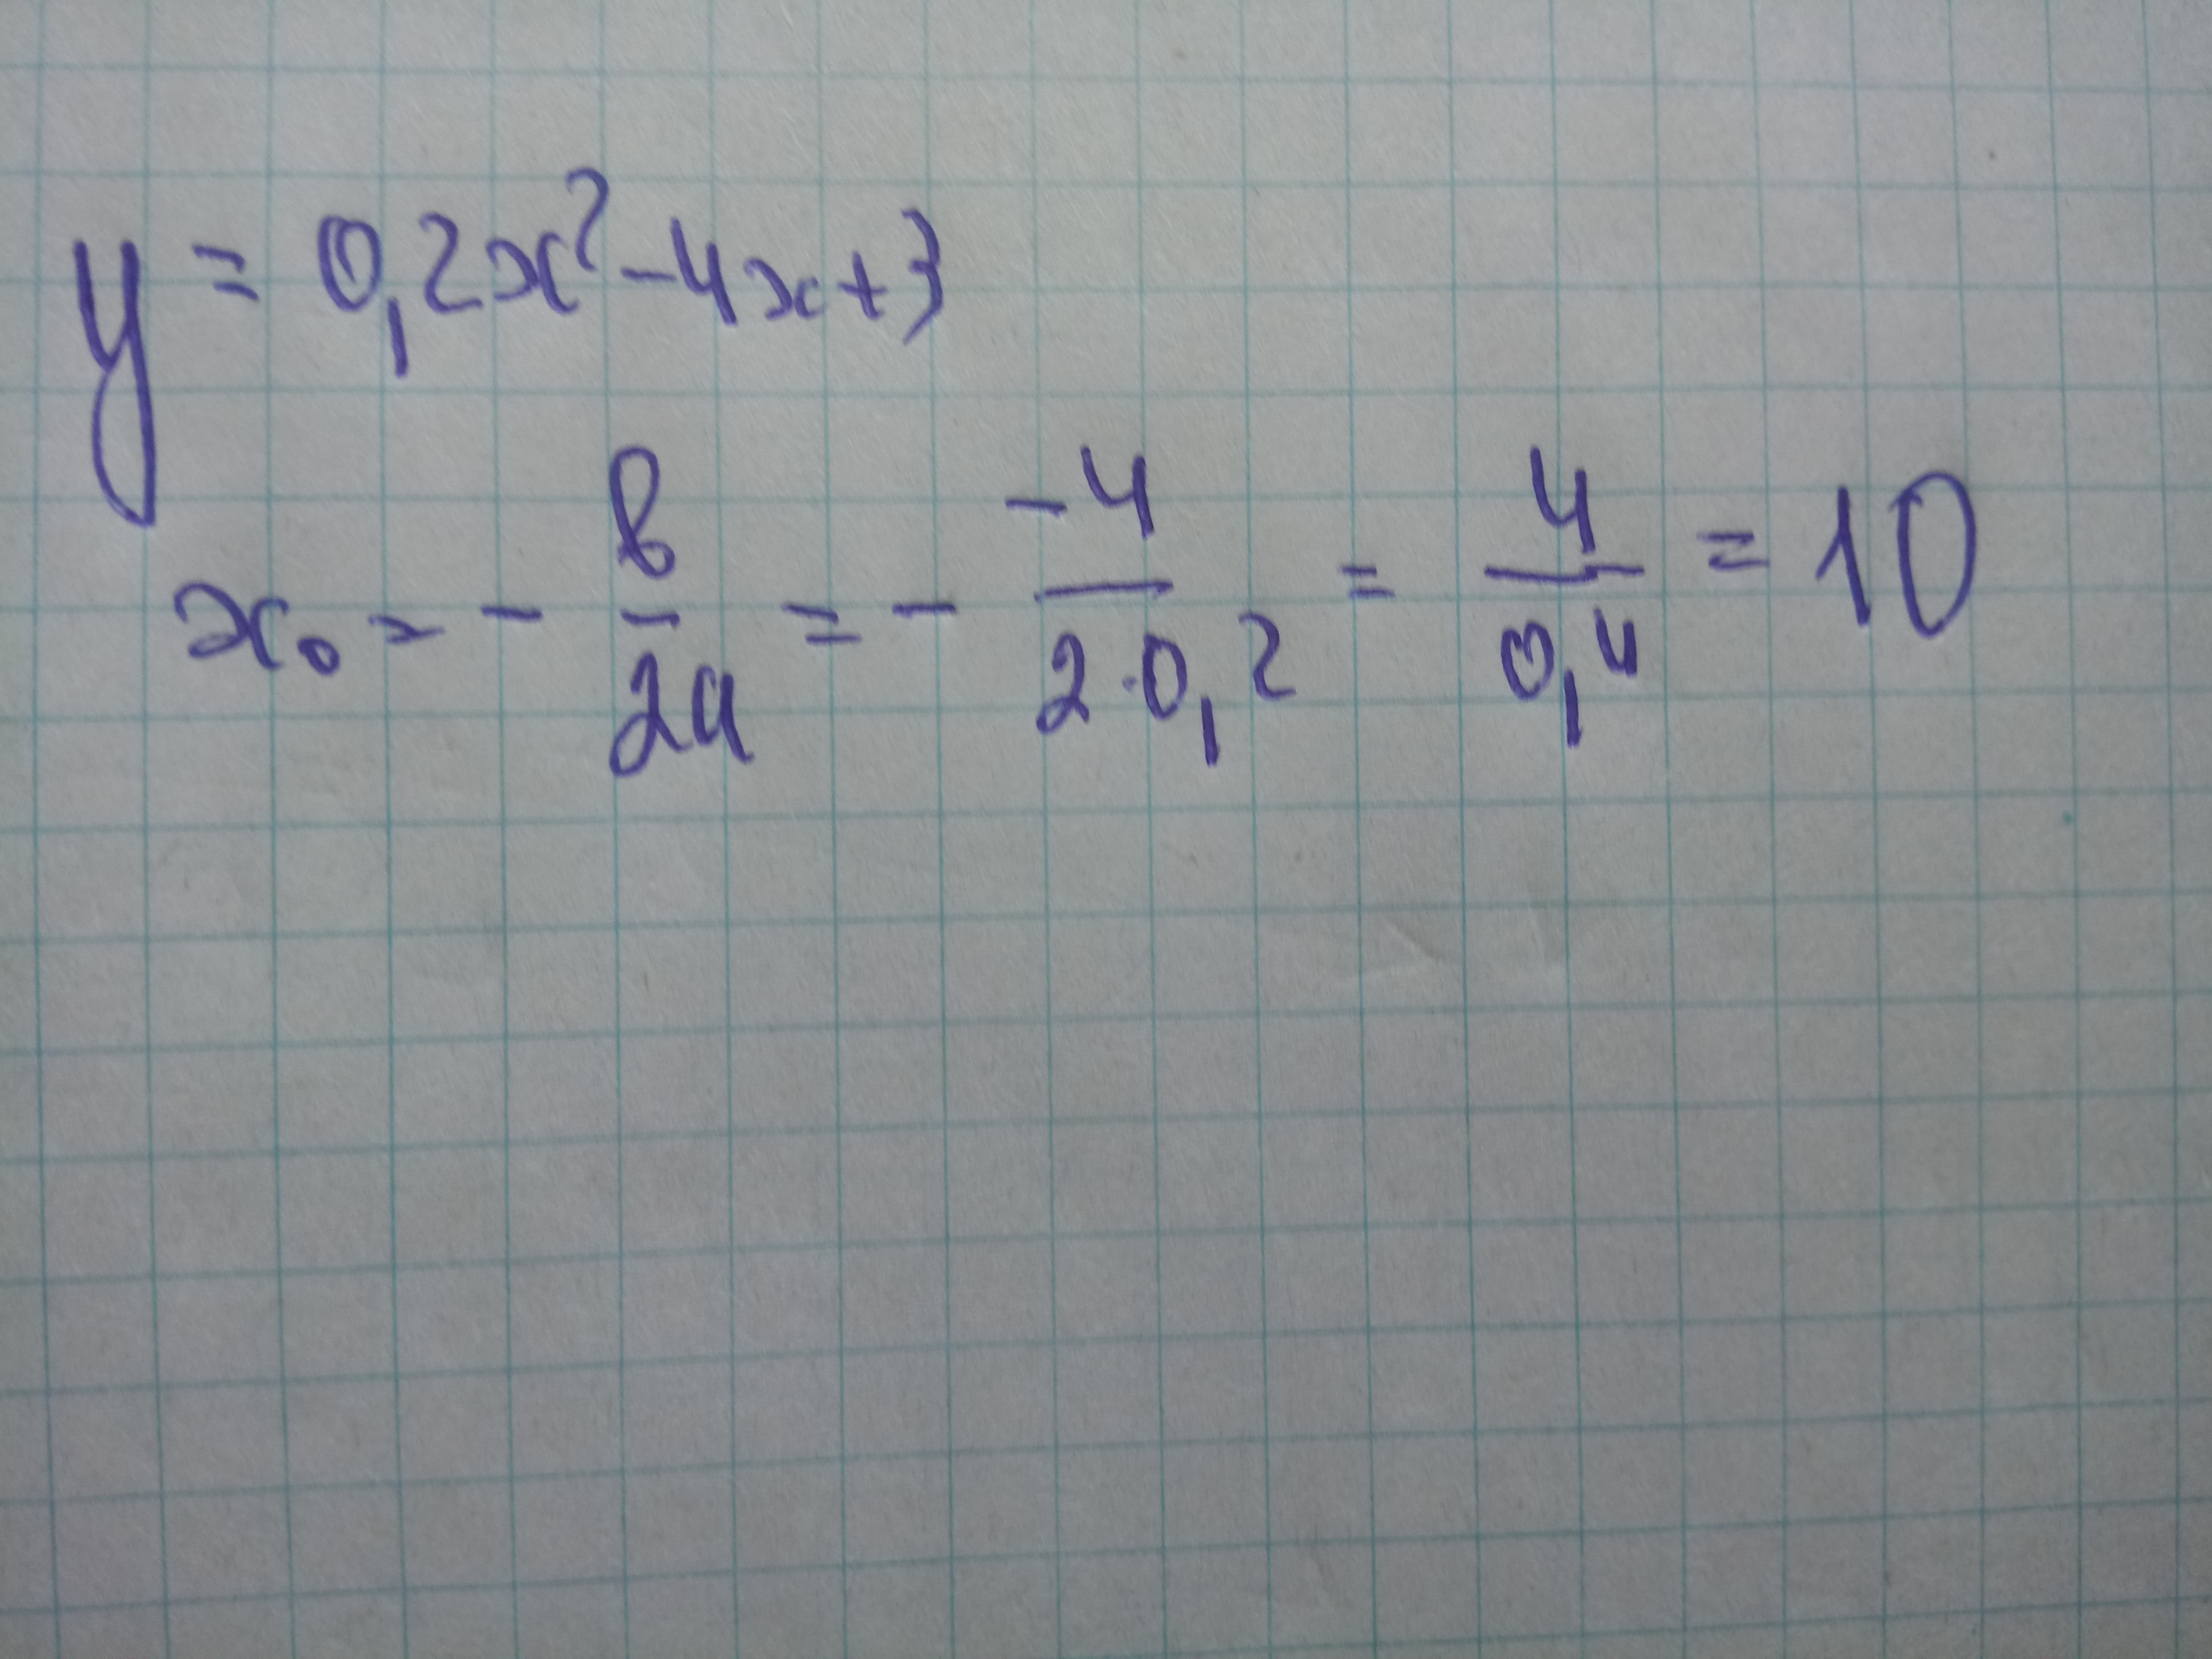 y = 0,2x² - 4x + 3
x₀ = - в/2a = - -4/2·0,2 = 4/0,4 = 10